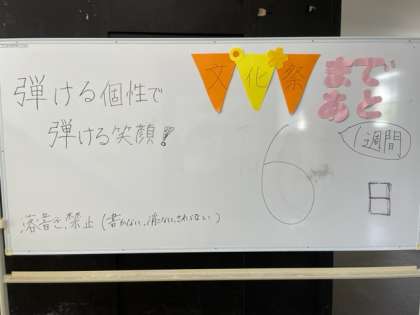 弾ける個性で
弾ける笑顔!
文化祭
まで
あと
1週間
6日
落書き禁止(書かない、消さない、さわらない)